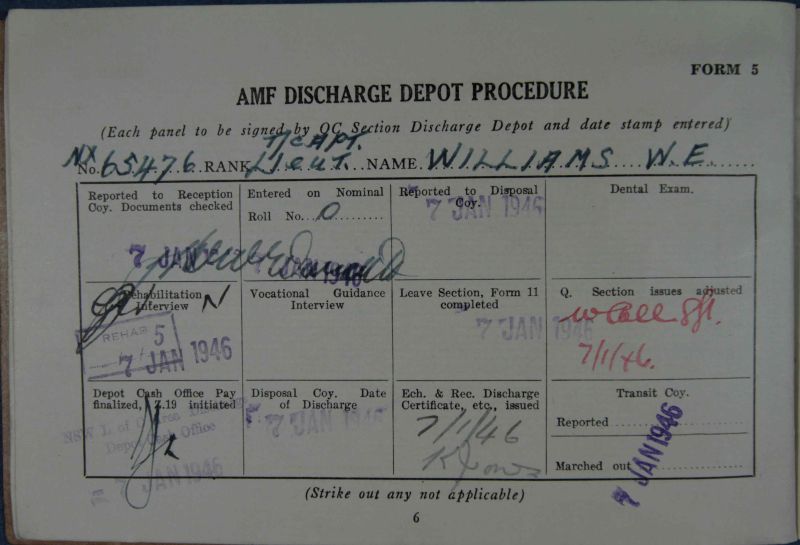 FORM 5
AMF DISCHARGE DEPOT PROCEDURE
(Each panel to be signed by OC Section Discharge Depot and date stamp entered)
T/CAPT.
No. NX65476 RANK Lieut. NAME WILLIAMS W.E.
Reported to Reception Coy. Documents checked
7 JAN
Entered on Nominal Roll No. 0
7 JAN 1946
Reported to Disposal Coy.
7 JAN 1946
Dental Exam.
Rehabilitation Interview N
REHAB 5
7 JAN 1946
Vocational Guidance Interview
Leave Section, Form 11 completed
7 JAN 1946
Q. Section issues adjusted
Sgt.
7/1/46.
Depot Cash Office Pay finalized, Z.19 initiated
NSW L. of C. Area
Depot Cash Office
7 JAN 1946
Disposal Coy. Date of Discharge
7 JAN 1946
Ech. & Rec. Discharge Certificate, etc., issued
7/1/46
K Jones
Transit Coy.
Reported
Marched out
7 JAN 1946
(Strike out any not applicable)
6